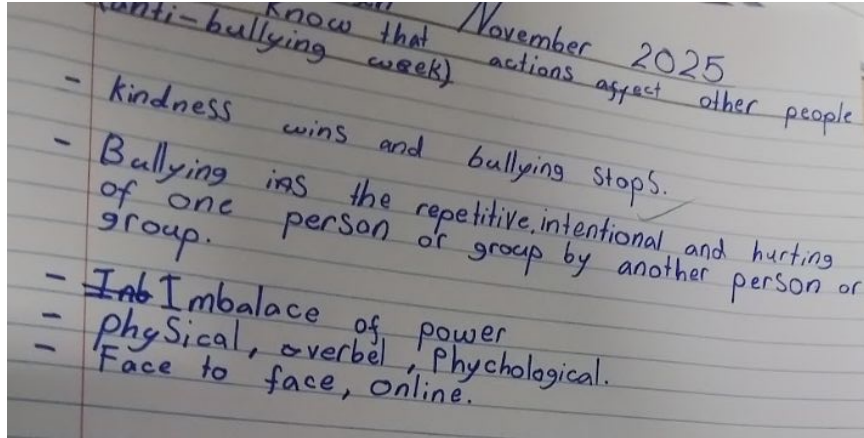 November 2025
Know that actions affect other people
(anti-bullying week)
- kindness wins and bullying stops.
- Bullying is the repetitive, intentional and hurting
of one person or group by another person or
group.
- Imbalace of power
- physical, verbel, Phychological.
- Face to face, online.